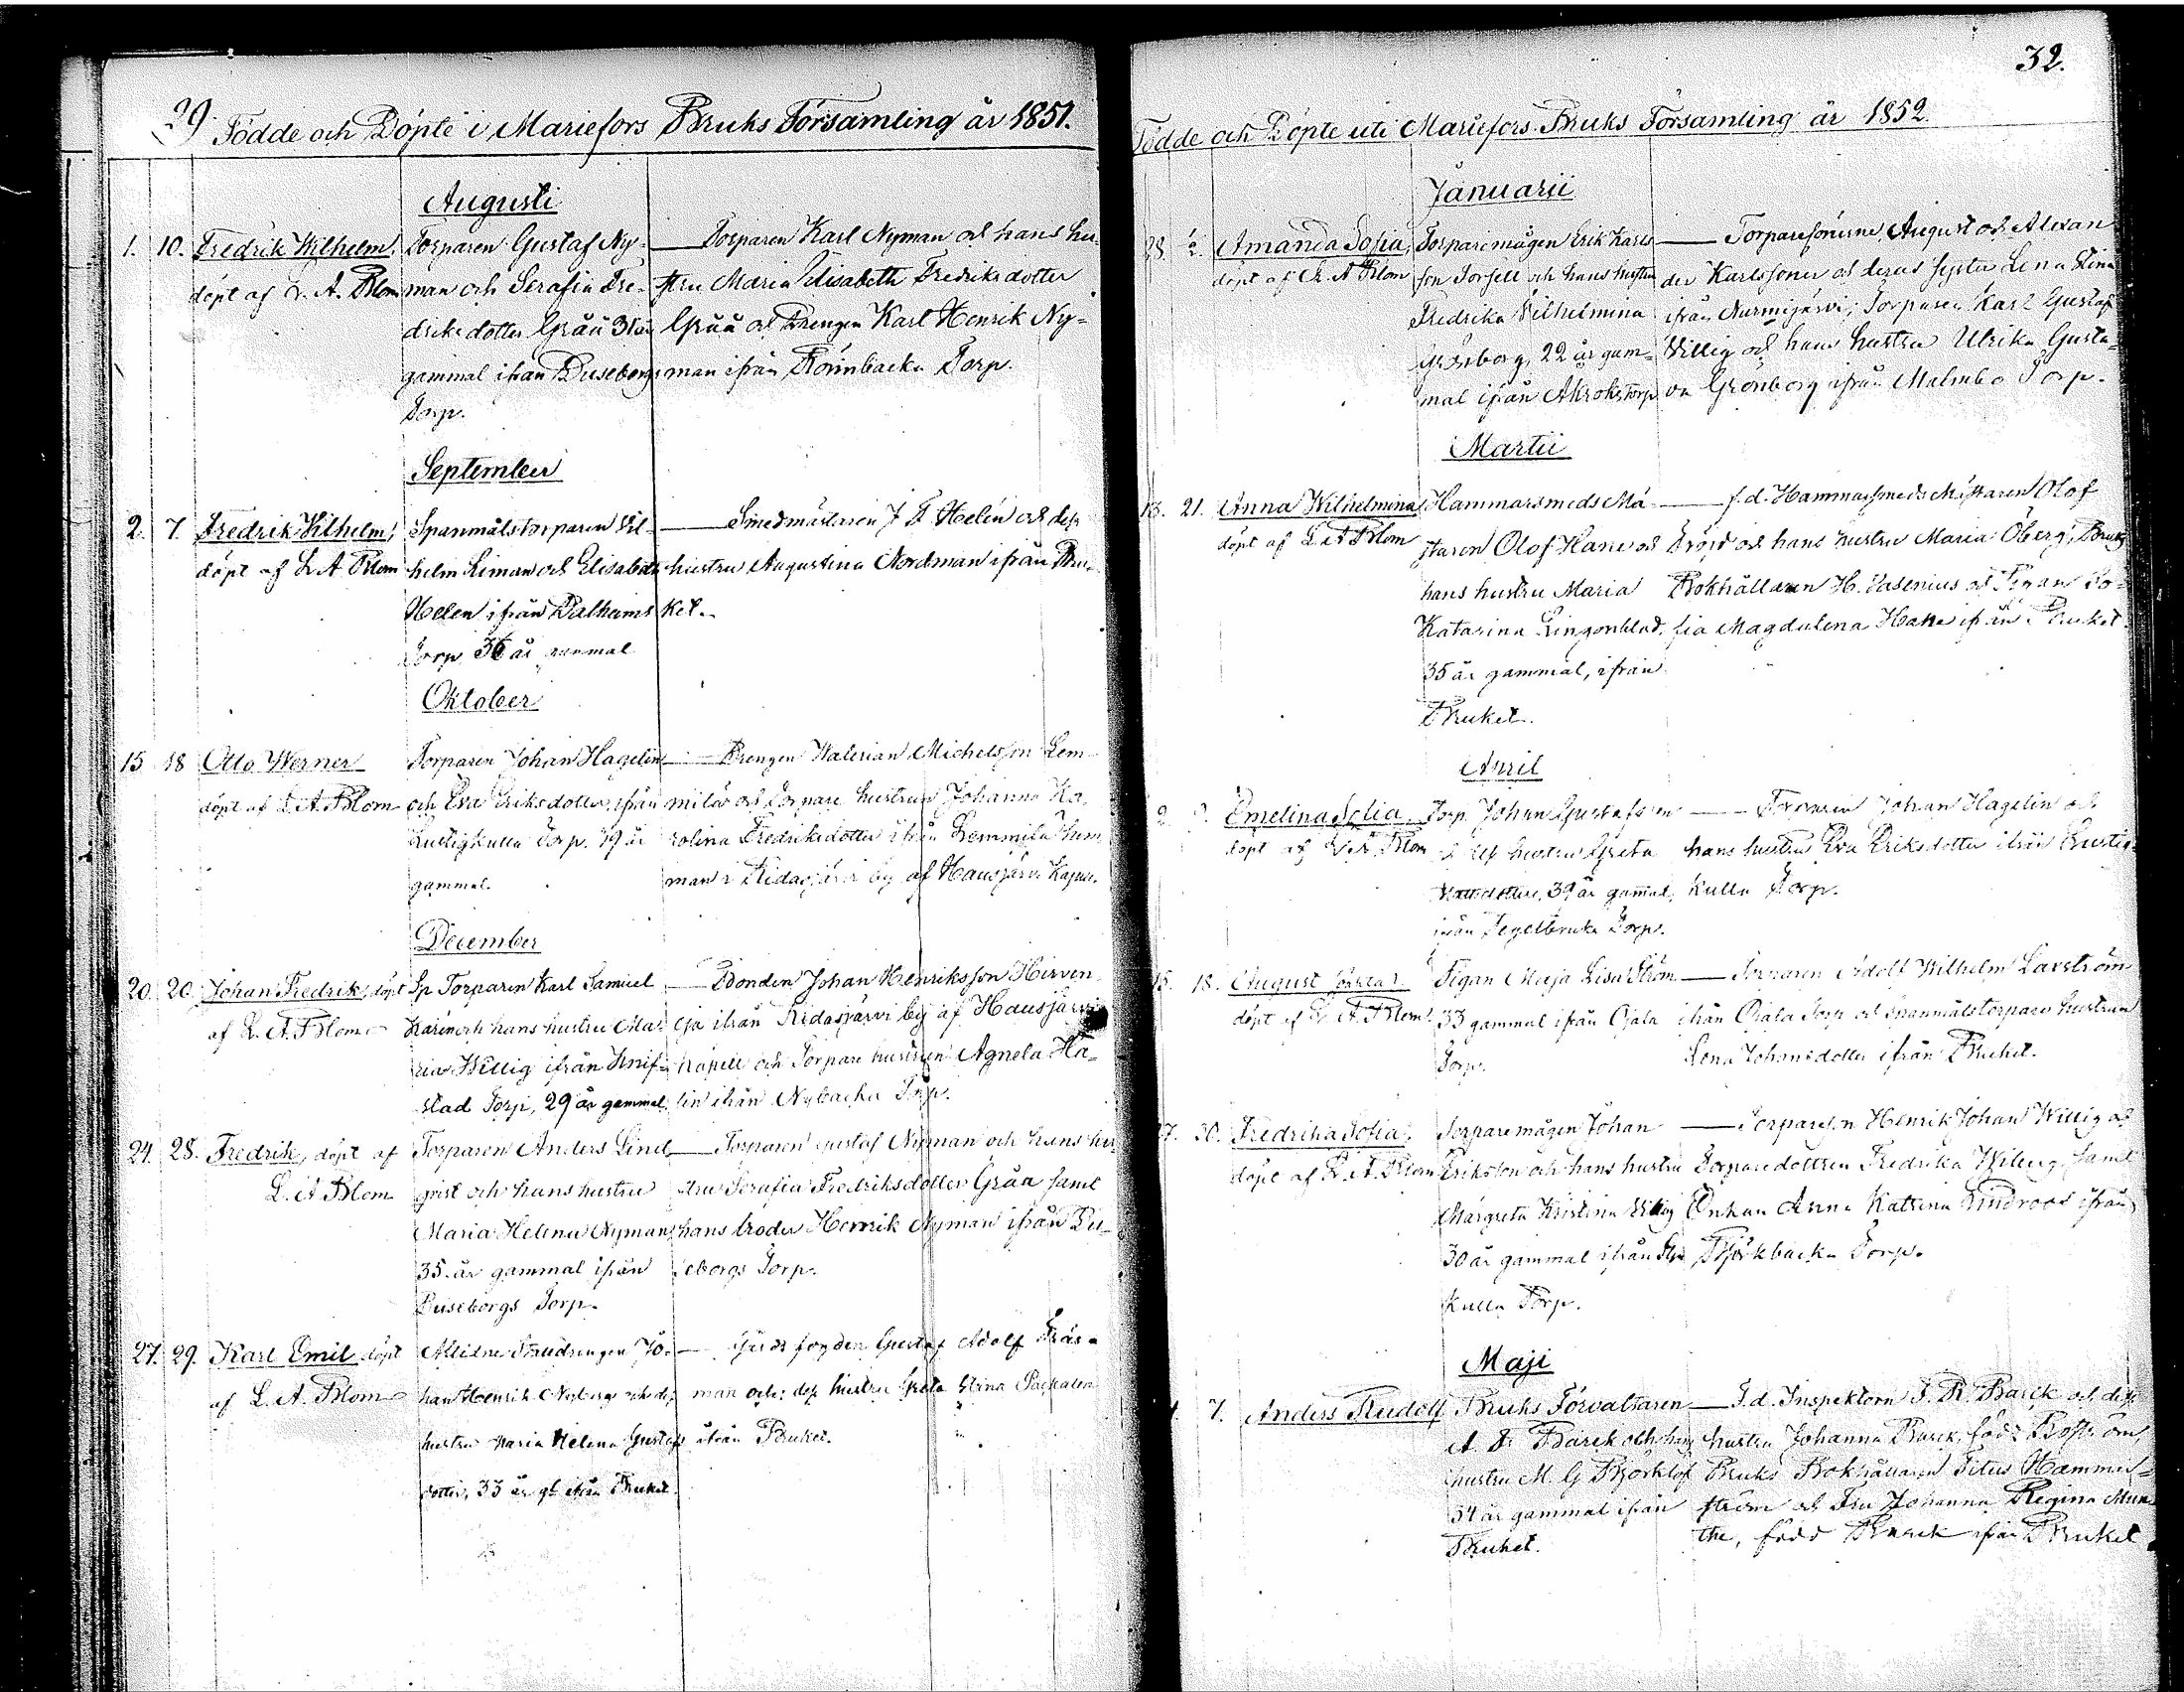 29. Födde och Döpte i Mariefors Bruks Församling år 1851.
Augusti
1. 10. Fredrik Wilhelm, Torparen Gustaf Ny- — Torparen Karl Nyman och hans hu-
döpt af L. A. Blom man och Serafia Fre- stru Maria Elisabeth Fredriksdotter
driksdotter Gråå 31 år Gråå och Drengen Karl Henrik Ny-
gammal ifrån Buseborgs man ifrån Rönnbacka Torp.
Torp.
September
2. 7. Fredrik Vilhelm, Spanmålstorparen Vil- — Smedmästaren J F Helén och dess
döpt af L A Blom helm Liman och Elisabeth hustru Augustina Nordman ifrån Bru-
Helen ifrån Dalheims ket.
Torp 36 år gammal
Oktober
15 18 Otto Werner Torparen Johan Hagelin — Drengen Walerian Michelsson Lem-
döpt af L. A. Blom och Eva Eriksdotter, ifrån milä och Torpare hustrun Johanna Ka-
Lustigkulla Torp. 39 år rolina Fredriksdotter ifrån Lemmilä hem-
gammal. man i Ridasjärvi by af Hausjärvi Kapell.
December
20. 20. Johan Fredrik, döpt Sp Torparen Karl Samuel — Bonden Johan Henriksson Hirven-
af L. A. Blom och hans hustru Ma- oja ifrån Ridasjärvi by af Hausjärvi
ria Willig ifrån Knif- Kapell och Torpare hustrun Agneta
stad Torp, 29 år gammal. lin ifrån Nybacka Torp.
24. 28. Fredrik, döpt af Torparen Anders Lind- — Torparen Gustaf Nyman och hans hu-
L. A Blom qvist och hans hustru stru Serafia Fredriksdotter Gråå samt
Maria Helena Nyman hans broder Henrik Nyman ifrån Bu-
35 år gammal ifrån seborgs Torp.
Buseborgs Torp.
27. 29. Karl Emil döpt Jo- — Gustaf Adolf
af L. A. Blom han Henrik Nyberg och dess man och dess hustru Greta Stina
hustru Maria Helena Gustafs ifrån Bruket.
dotter, 33 år gl ifrån Bruket.
32.
Födde och Döpte uti Mariefors Bruks Församling år 1852.
Januarii
28. Amanda Sofia, Torparemågen Erik Karls- — Torparesönerne August och Alexan-
döpt af L. A Blom son Forsell och hans hustru der Karlssoner och deras syster Lena Stina
Fredrika Vilhelmina ifrån Nurmijärvi; Torparen Karl Gustaf
22 år gam- Willig och hans hustru Ulrika Gusta-
mal ifrån Torp va Grönborg ifrån Malmbo Torp.
Martii
13. 21. Anna Wilhelmina Hammarsmeds Mä- — f.d. Hammarsmeds Mästaren Olof
döpt af L A Blom staren Olof Hane och och hans hustru Maria Öberg; Bruks
hans hustru Maria Bokhållaren H. Vasenius och Pigan So-
Katarina Lingonblad, fia Magdalena Hane ifrån Bruket.
35 år gammal, ifrån
Bruket.
April
2. Emelina Sofia Torp. Johan Gustafsson — Torparen Johan Hagelin och
döpt af L. A. Blom och dess hustru Greta hans hustru Eva Eriksdotter ifrån Lustig-
39 år gammal, kulla Torp.
ifrån Tegelbruks Torp.
15. 18. August Pigan Maja Lisa Ström — Torparen Adolf Wilhelm Lavström
döpt af L. A. Blom 33 gammal ifrån Ojala ifrån Ojala Torp och Spanmålstorpare hustrun
Torp. Lena Johansdotter ifrån Bruket.
27. 30. Fredrika Sofia, Torparemågen Johan — Torpareson Henrik Johan Willig och
döpt af L. A. Blom Eriksson och hans hustru Torparedottren Fredrika Willig, samt
Margreta Kristina Willig Enkan Anna Katrina Lindroos ifrån
30 år gammal ifrån Björkbacka Torp.
kulla Torp.
Maji
7. Anders Rudolf Bruks Förvaltaren — F.d. Inspektorn F. R. Barck och dess
Barck och hans hustru Johanna Barck, född Boström,
hustru M. G Björklöf Bruks Bokhållaren Titus Hammar-
34 år gammal ifrån ström och Fru Johanna Regina Mun-
Bruket. the, född Barck ifrån Bruket